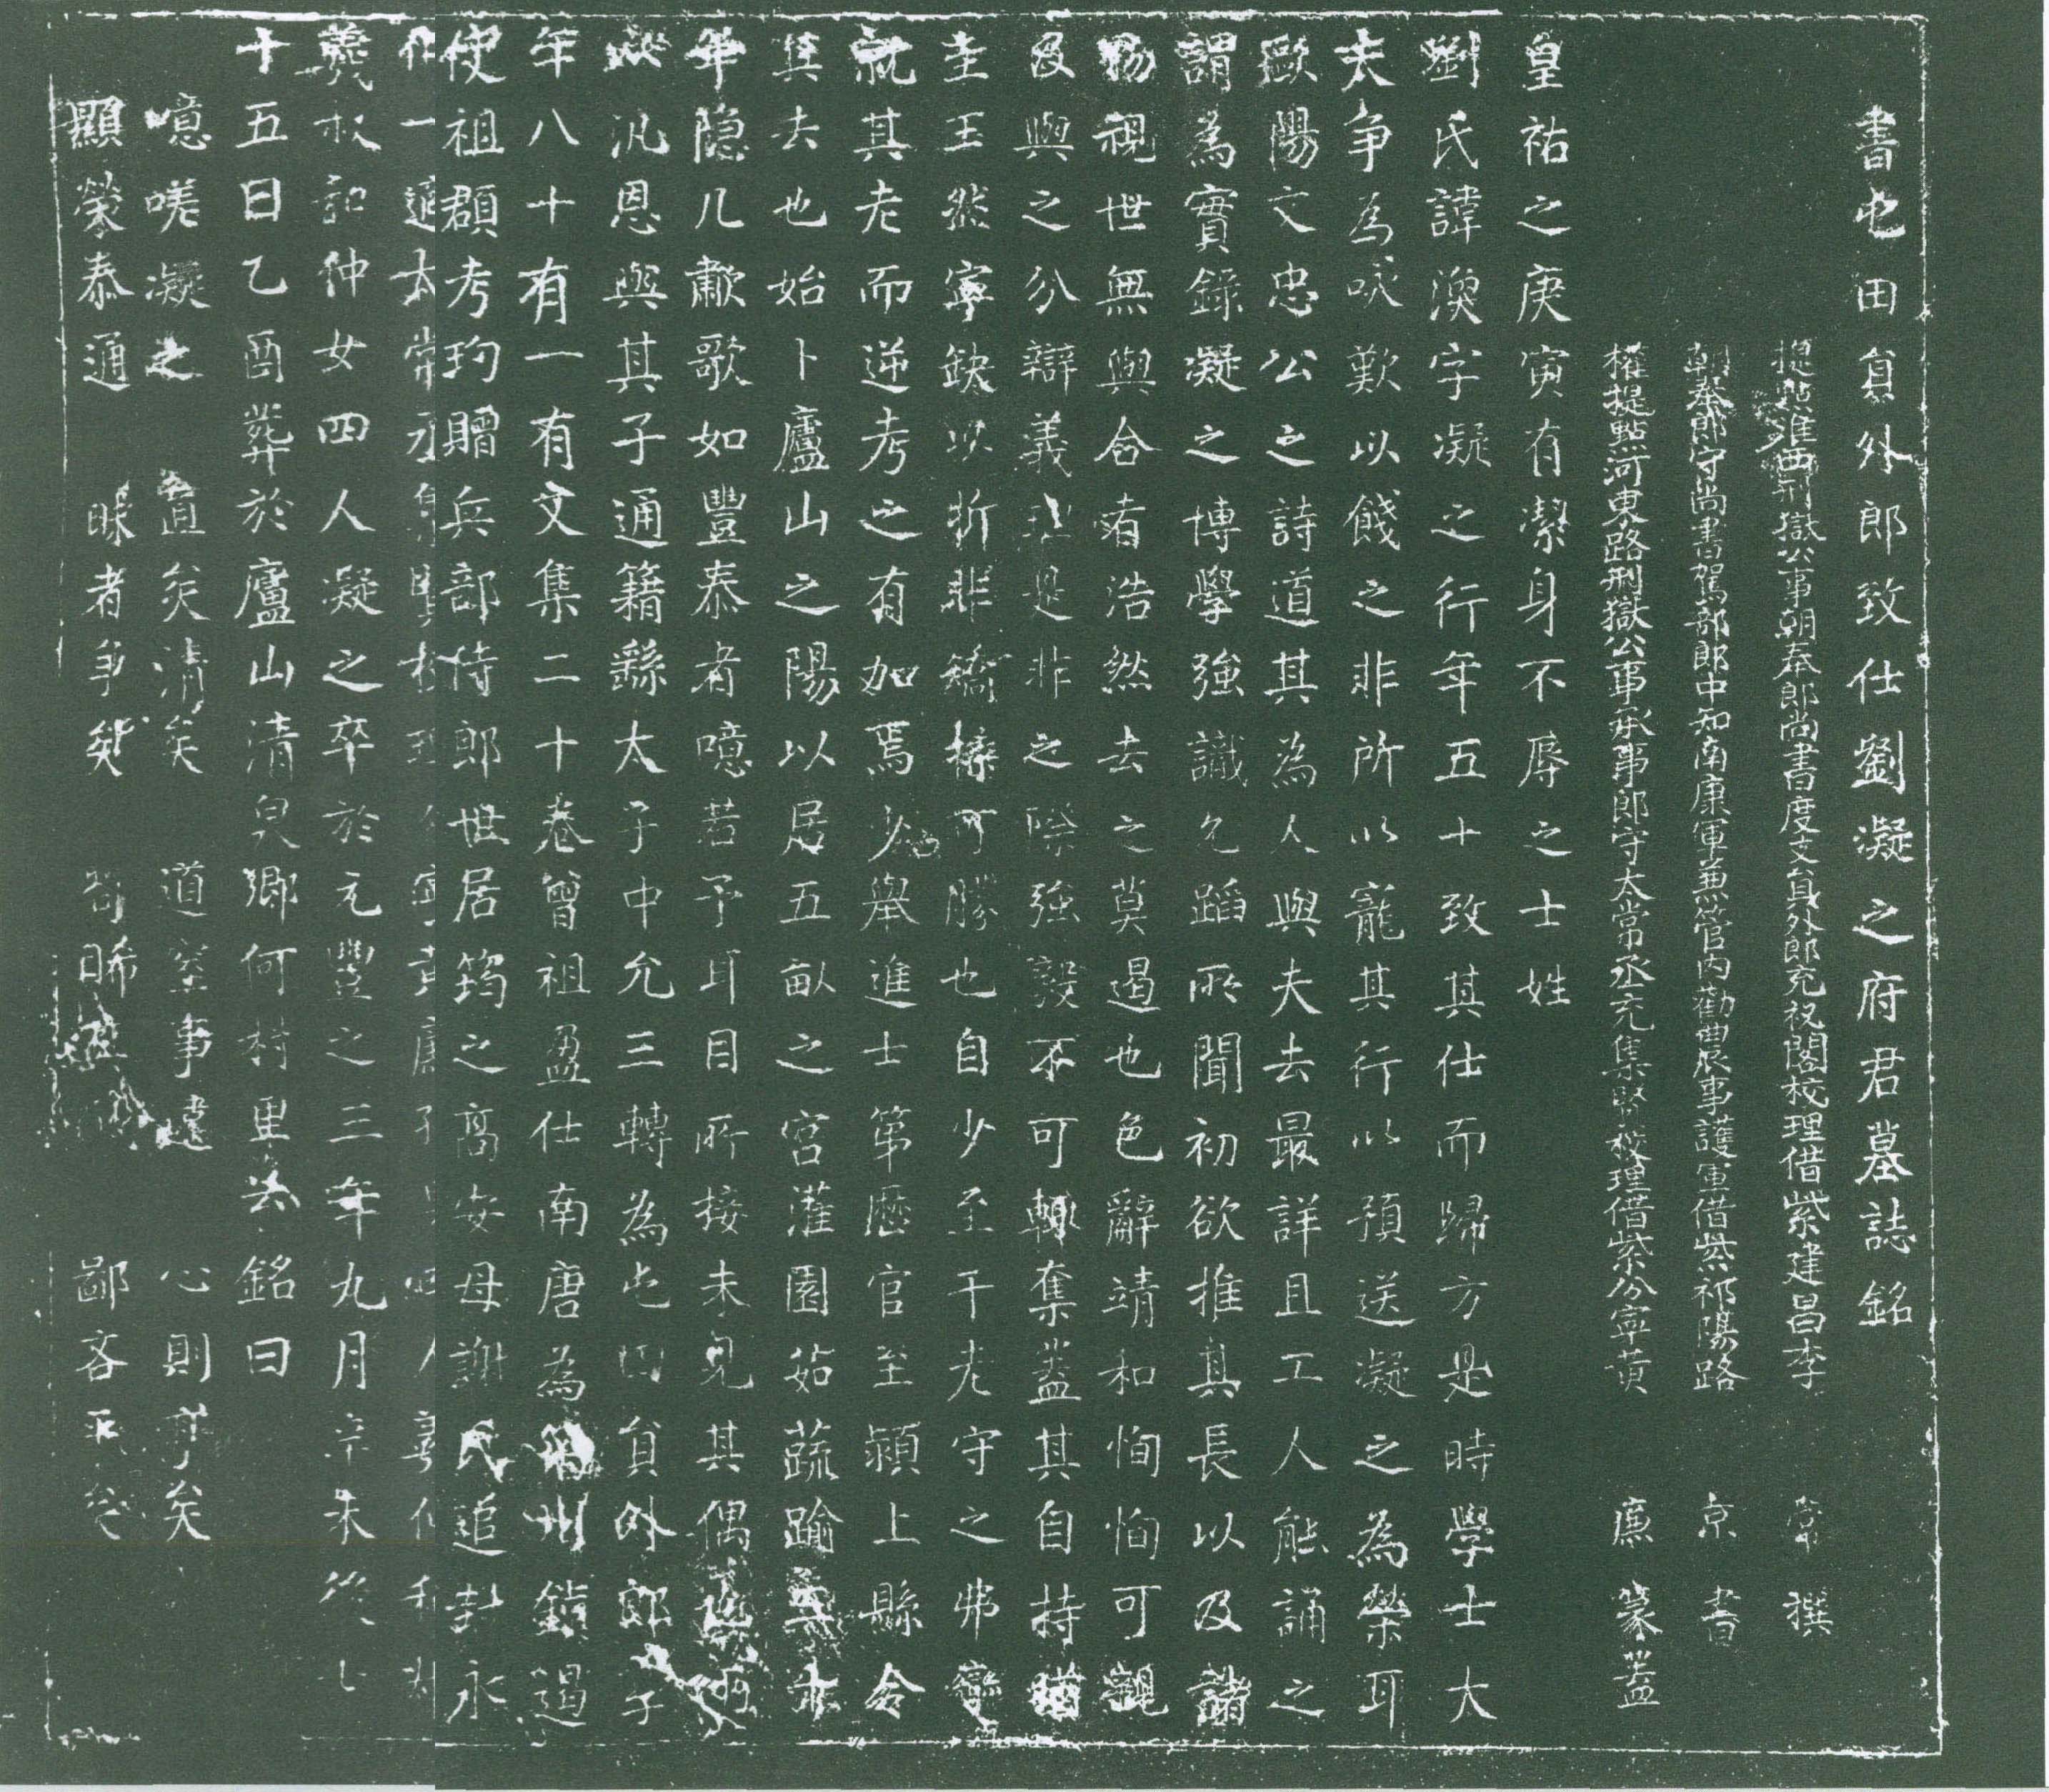 書屯田員外郎致仕劉凝之府君墓誌銘
提點淮西刑獄公事朝奉郎尚書度支員外郎充祕閣校理借紫建昌李常撰
朝奉郎守尚書駕部郎中知南康軍兼管內勸農事護軍借紫祁陽路京書
權提點河東路刑獄公事承事郎守太常丞充集賢校理借紫分寧黃廉篆蓋
皇祐之庚寅有潔身不辱之士姓
劉氏諱渙字凝之行年五十致其仕而歸方是時學士大
夫爭為咏歎以餞之非所以寵其行以預送凝之為榮耳
歐陽文忠公之詩道其為人與夫去最詳且工人能誦之
謂為實錄凝之博學強識允蹈所聞初欲推其長以及諸
物視世無與合者浩然去之莫遏也色辭靖和恂恂可觀
及與之分辯義理是非之際強毅不可轉奪蓋其自持猶
圭玉然寧缺以折非矯揉可勝也自少至于老守之弗變
就其老而逆考之有加焉少舉進士第歷官至潁上縣令
其去也始卜廬山之陽以居五畝之宮灌園茹蔬踰
年隱几歗歌如豐泰者噫若予耳目所接未見其偶
汎恩與其子通籍繇太子中允三轉為屯田員外郎
年八十有一有文集二十卷曾祖盈仕南唐為鎮遏
使祖顓考玓贈兵部侍郎世居筠之高安母謝氏追封永
一適太常
義叔和仲女四人凝之卒於元豐之三年九月辛未後七
十五日乙酉葬於廬山清泉鄉何村里云銘曰
噫嗟凝之 直矣清矣 道窒事違 心則亨矣
顯榮泰通 昧者爭矣 鄙吝